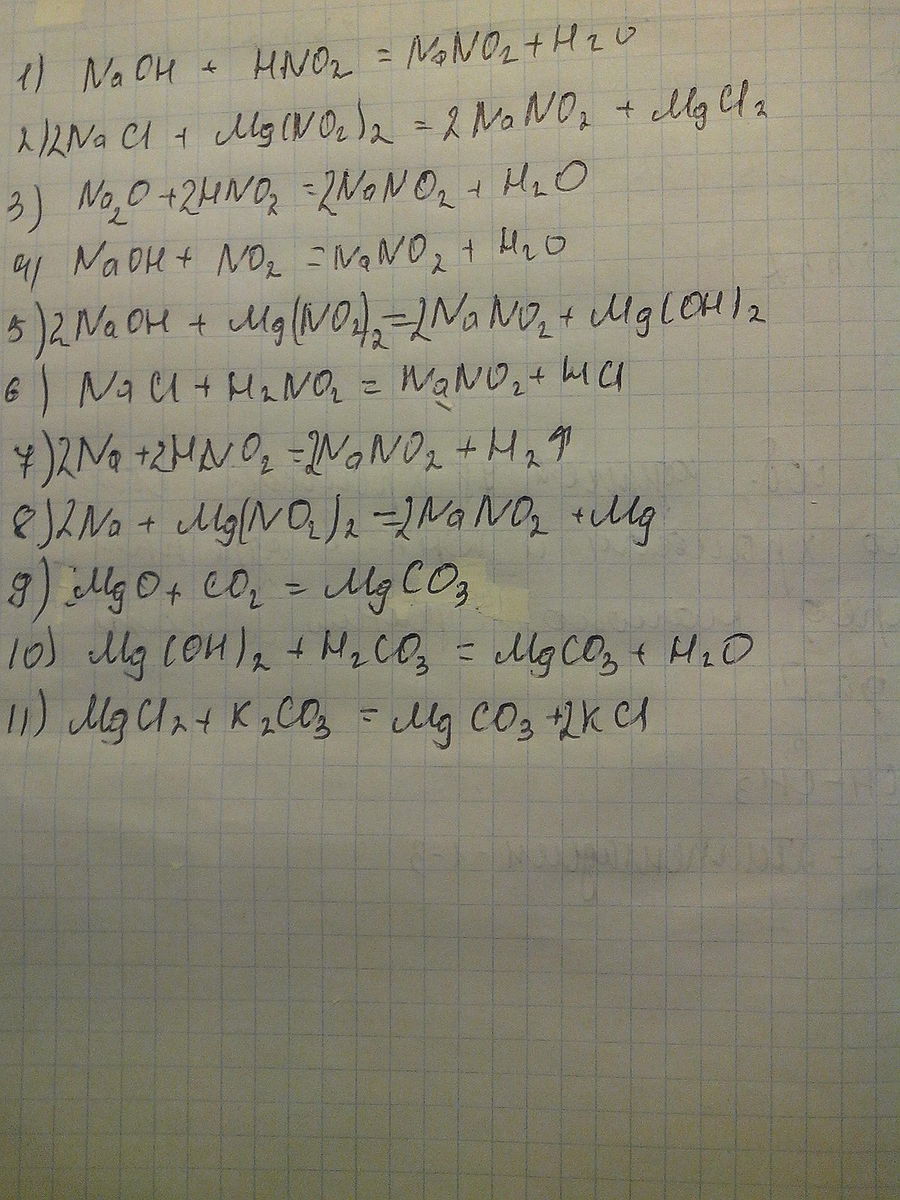 1) NaOH + HNO₂ = NaNO₂ + H₂O
2) 2NaCl + Mg(NO₂)₂ = 2NaNO₂ + MgCl₂
3) Na₂O + 2HNO₂ = 2NaNO₂ + H₂O
4) NaOH + NO₂ = NaNO₂ + H₂O
5) 2NaOH + Mg(NO₂)₂ = 2NaNO₂ + Mg(OH)₂
6) NaCl + H₂NO₂ = NaNO₂ + HCl
7) 2Na + 2HNO₂ = 2NaNO₂ + H₂↑
8) 2Na + Mg(NO₂)₂ = 2NaNO₂ + Mg
9) MgO + CO₂ = MgCO₃
10) Mg(OH)₂ + H₂CO₃ = MgCO₃ + H₂O
11) MgCl₂ + K₂CO₃ = MgCO₃ + 2KCl